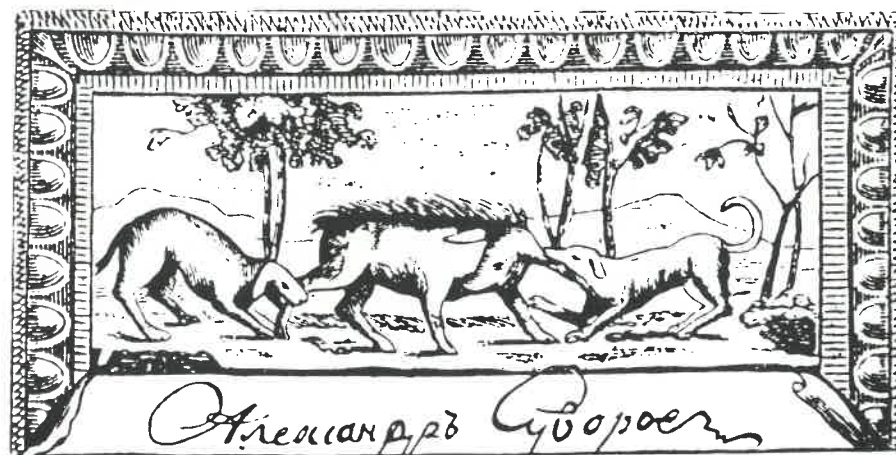 Александръ Суворовъ